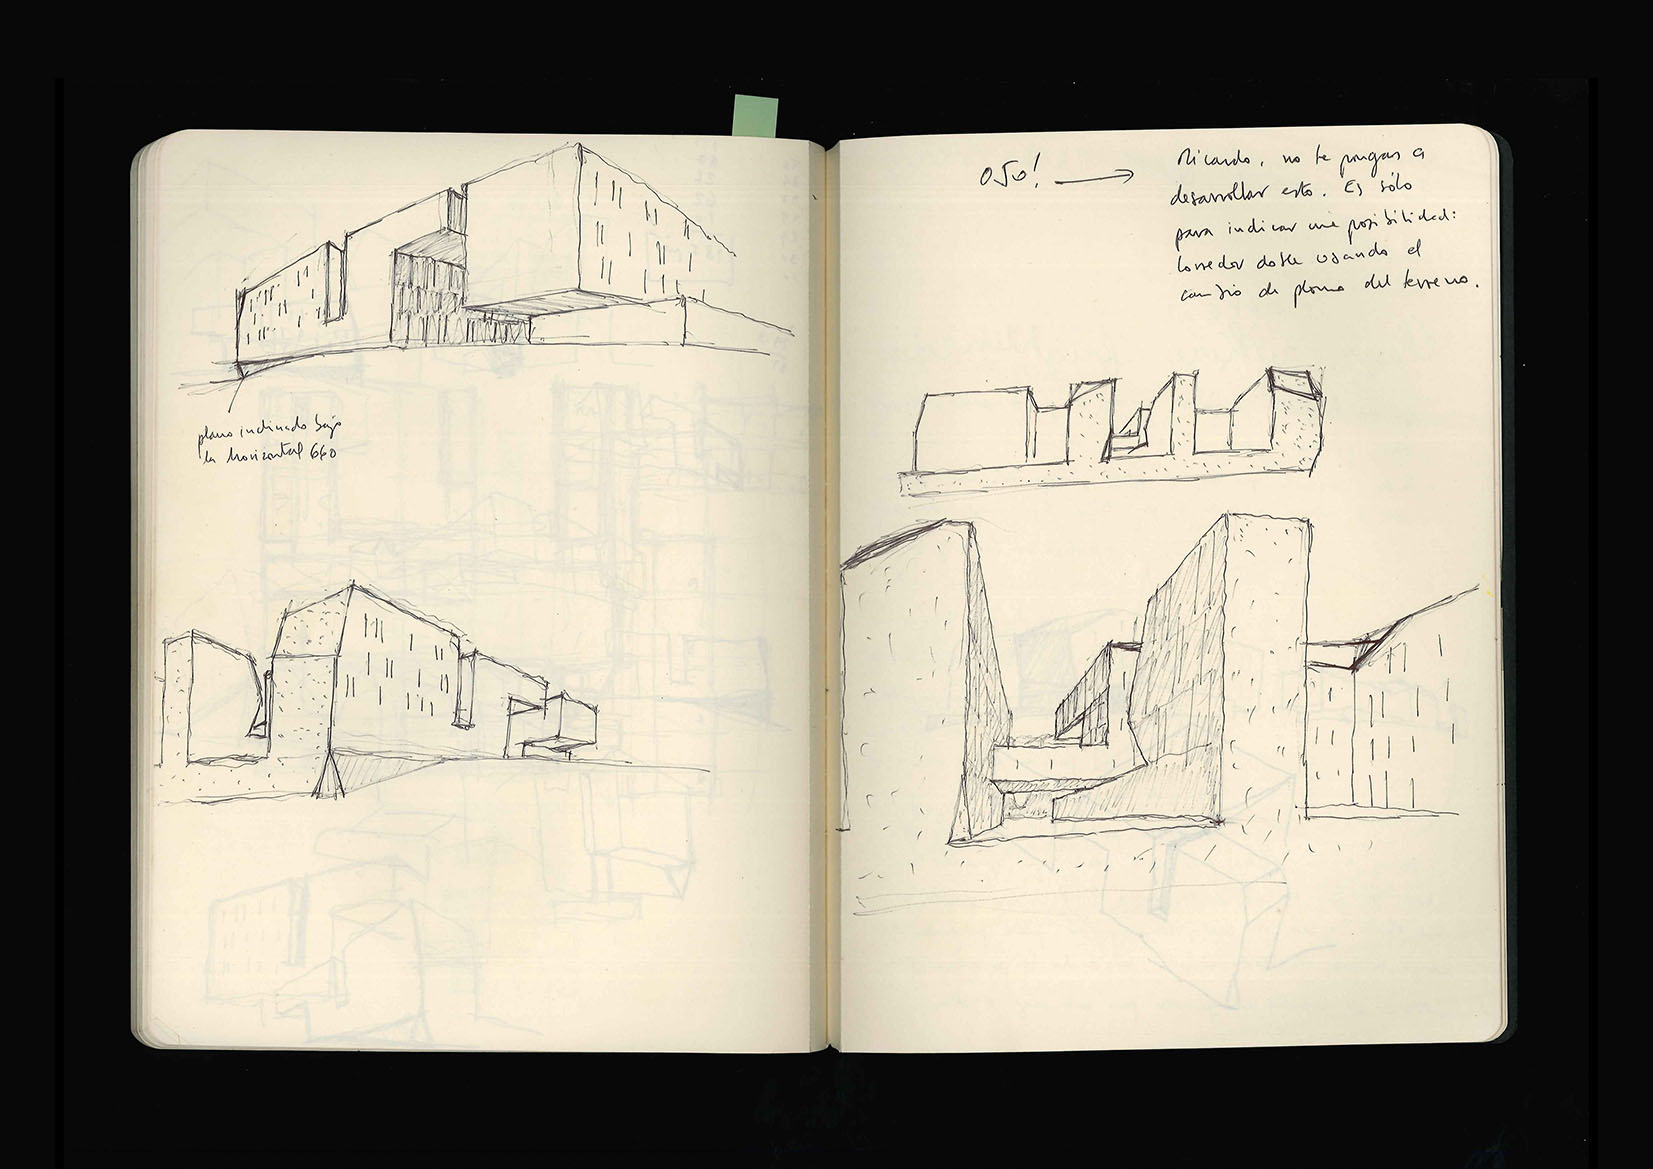 plano inclinado bajo
la horizontal 660
OJO!
Ricardo, no te pongas a
desarrollar esto. Es sólo
para indicar una posibilidad:
corredor doble usando el
cambio de plano del terreno.